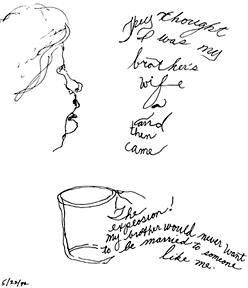 They thought
I was my
brother's
wife
and
then
came
The
explosion!
my brother would never want
to be married to someone
like me.